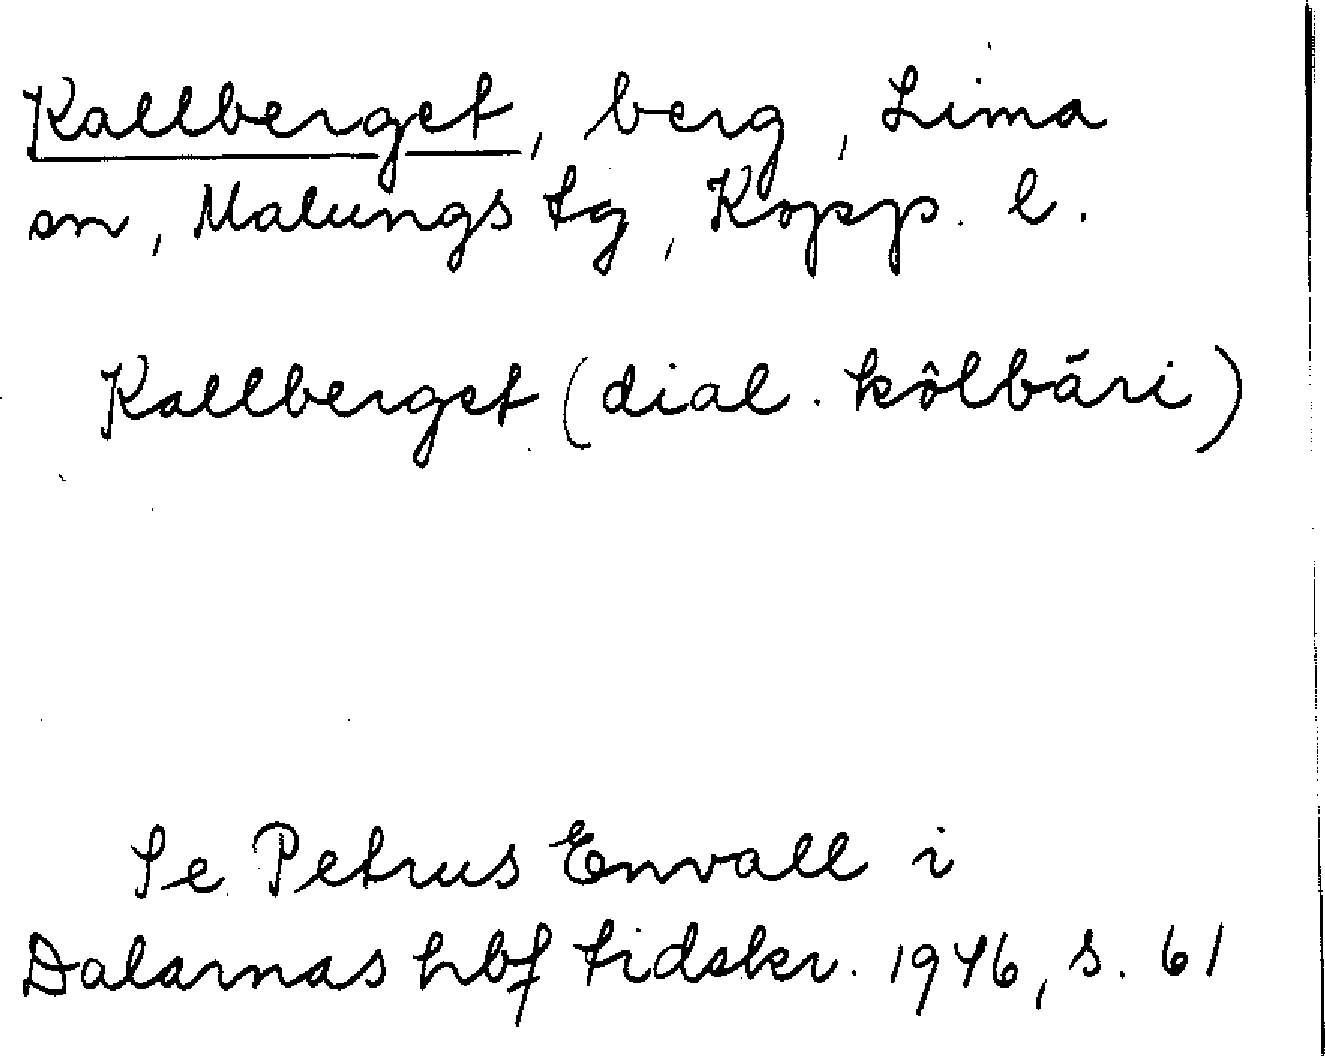 Kallberget, berg, Lima
sn, Malungs tg, Kopp. l.
Kallberget (dial. kôlbāri)
Se Petrus Envall i
Dalarnas hbf tidskr. 1946, s. 61